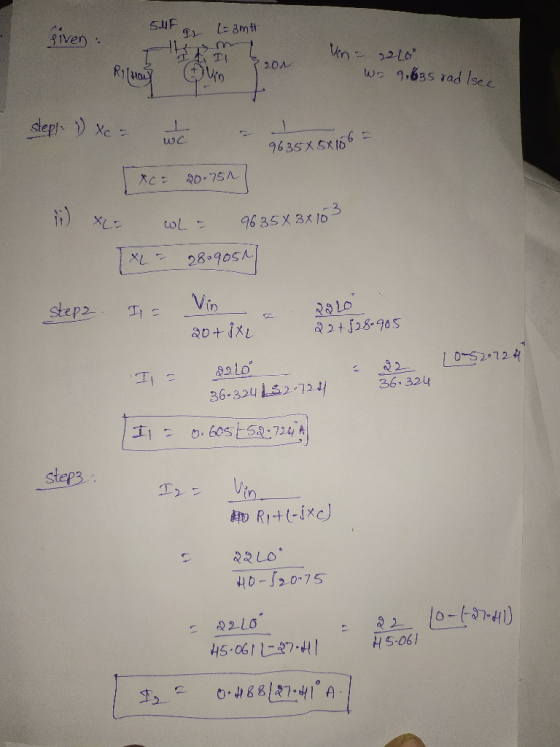 Given :
5μF I2 L=3mH
I I1
R1 (40Ω) Vin 20Ω
Vin = 22∠0°
ω = 9.635 rad/sec
Step1: i) XC = 1/ωC = 1/(9635×5×10^-6) =
XC = 20.75Ω
ii) XL = ωL = 9635×3×10^-3
XL = 28.905Ω
Step2 I1 = Vin/(20+jXL) = 22∠0°/(22+j28.905)
I1 = 22∠0°/(36.324∠52.724) = 22/36.324 ∠0-52.724°
I1 = 0.605∠-52.724° A
Step3: I2 = Vin/(R1+(-jXC))
= 22∠0°/(40-j20.75)
= 22∠0°/(45.061∠-27.41) = 22/45.061 ∠0-(-27.41)
I2 = 0.488∠27.41° A.